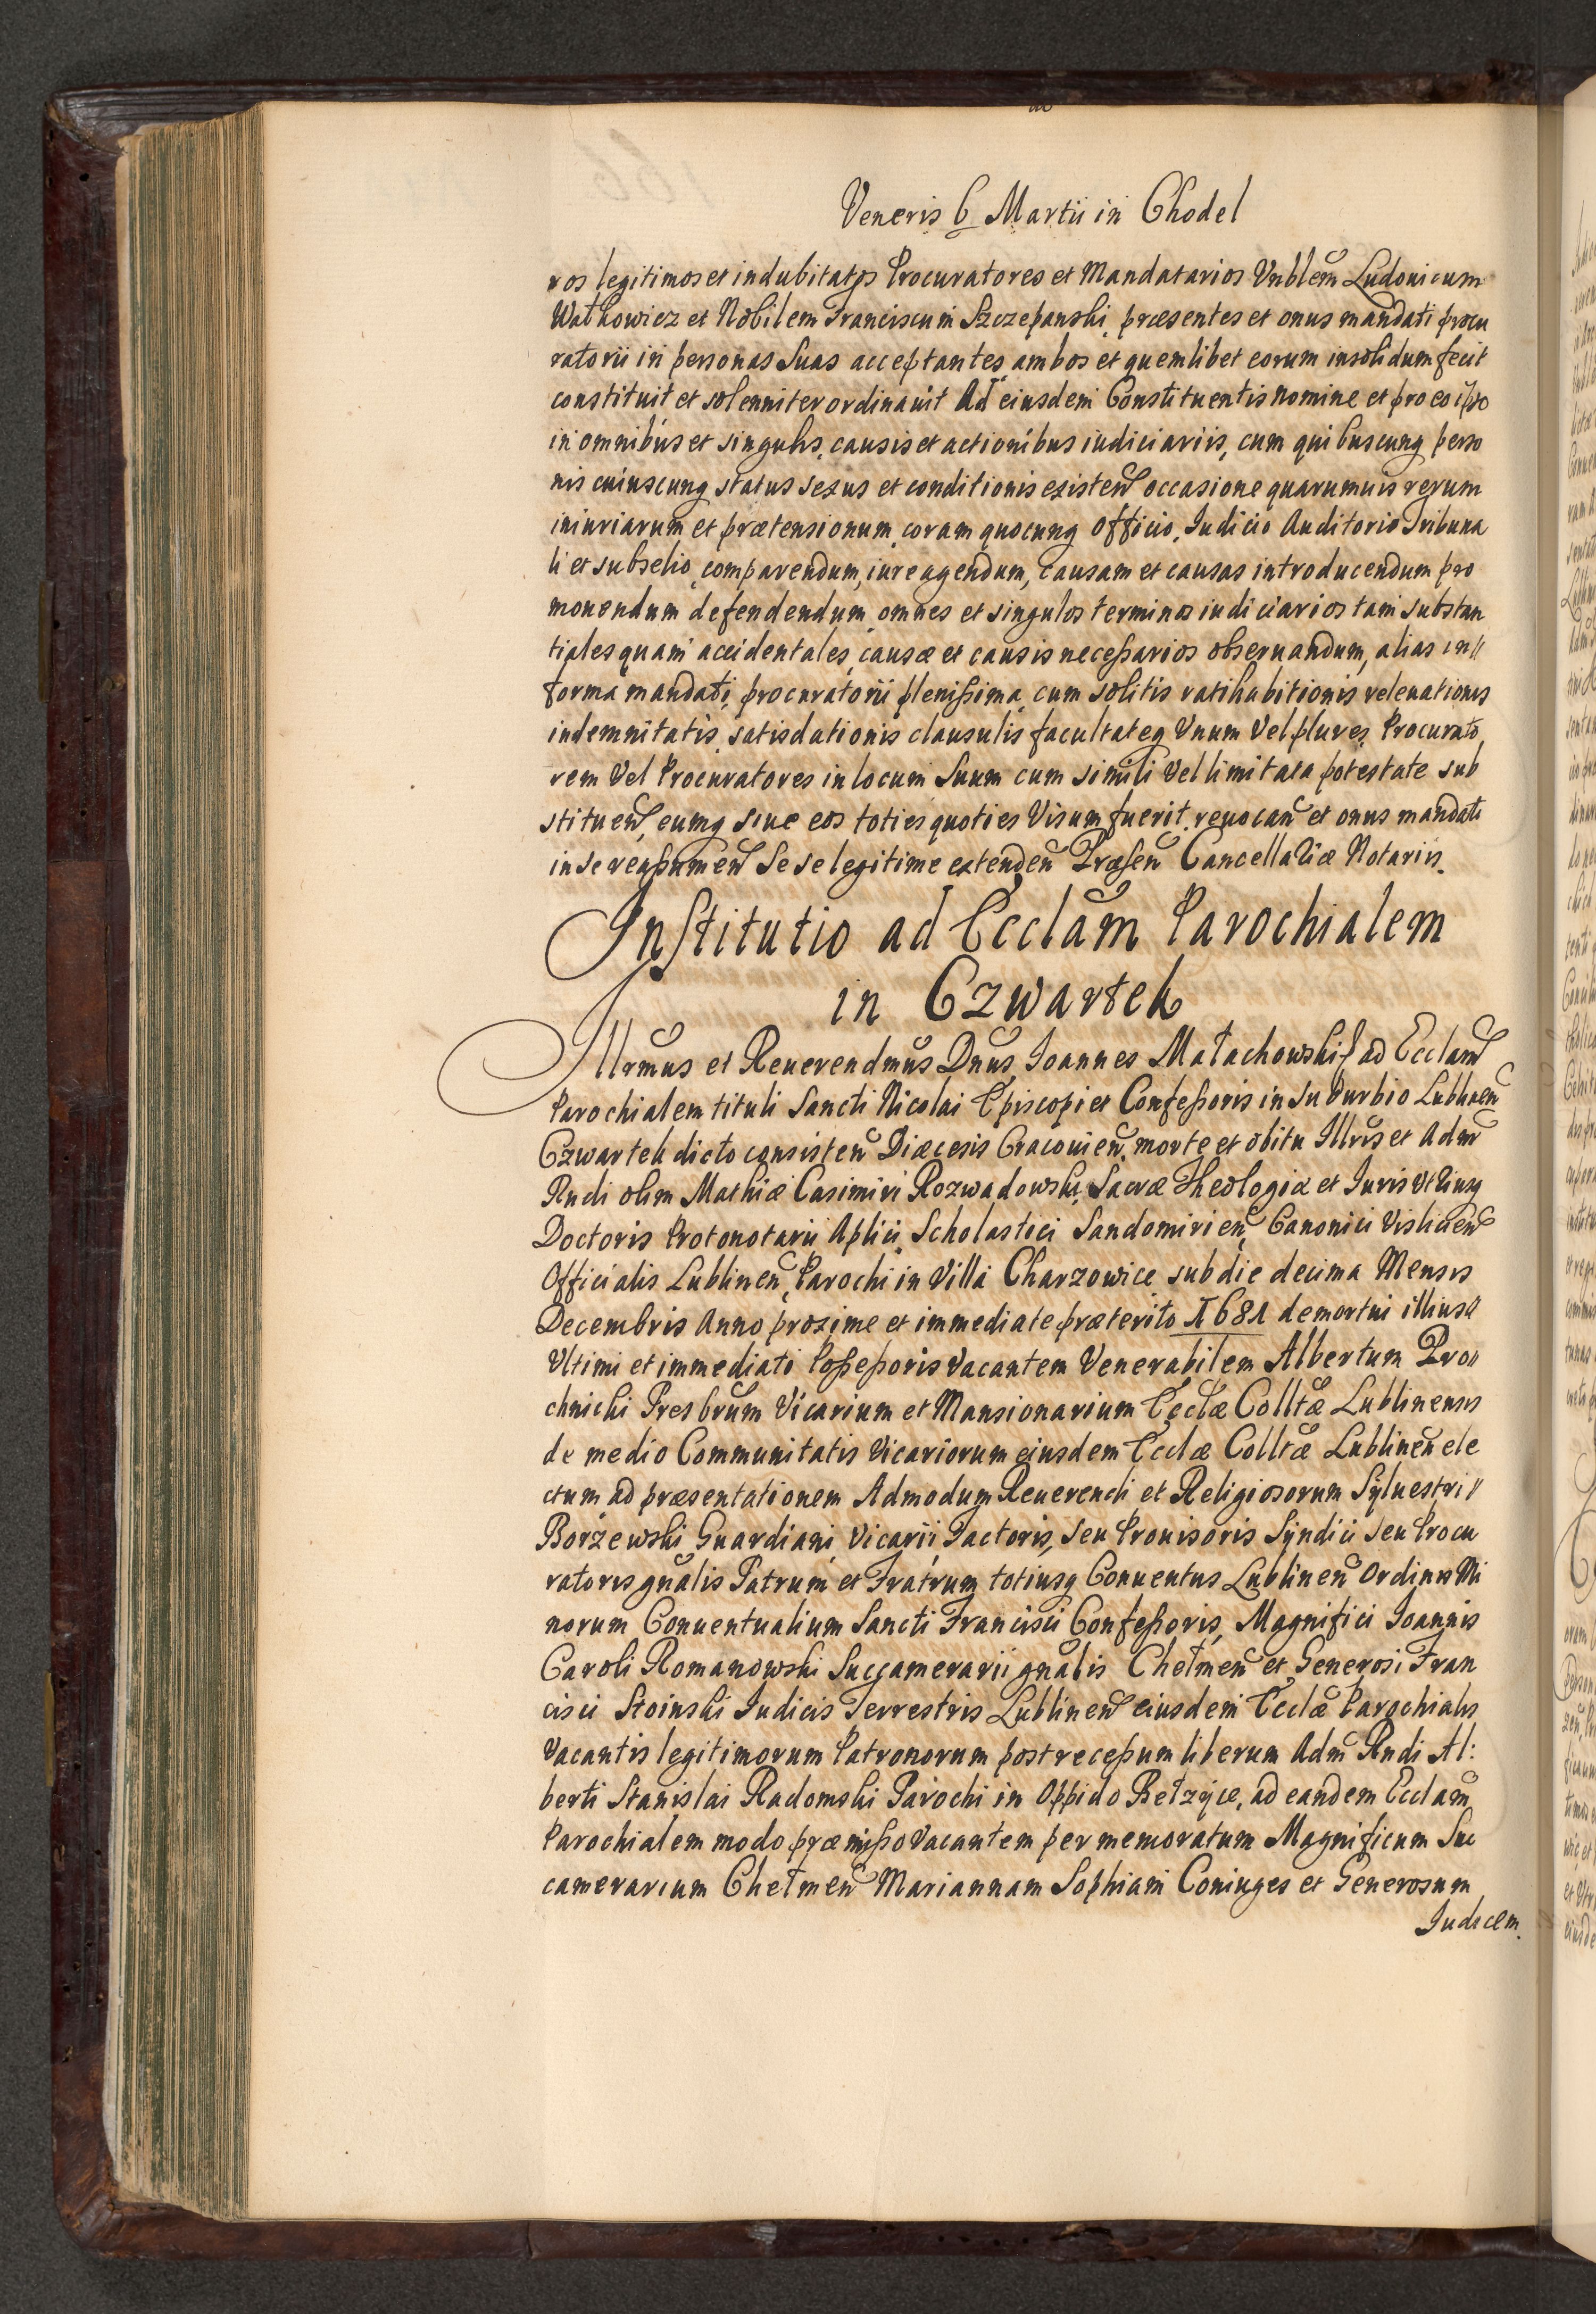 Veneris 6 Martii in Chodel
ros legitimos et indubitatos Procuratores et Mandatarios Vnblem̃ Ludouicum
Watkowicz et Nobilem Franciscum Szczepanski, præsentes et onus mandati procu
ratorii in personas Suas acceptantes, ambos et quemlibet eorum insolidum fecit
constituit et solenniter ordinauit Ad eiusdem Constituentis nomine et pro eo ipso
in omnibus et singulis, causis et actionibus iudiciariis, cum quibuscunq perso
nis cuiuscunq status sexus et conditionis existeñ occasione quarumuis rerum
iniuriarum et prætensionum, coram quocunq Officio, Iudicio Auditorio Tribuna
li et subselio, comparendum, iure agendum, causam et causas introducendum pro
mouendum defendendum, omnes et singulos terminos iudiciarios tam substan
tiales quam accidentales, causæ et causis necessarios obseruandum, alias in//
forma mandati, procuratorii plenissima, cum solitis ratihabitionis releuationis
indemnitatis, satisdationis clausulis facultateq Vnum Vel plures, Procurato
rem Vel Procuratores in locum Suum cum simili Vel limitata potestate sub
stitueñ, eumq siue eos toties quoties Visum fuerit, reuocañ et onus mandati
in se reassumeñ Se se legitime extendeñ Præseñ Cancellariæ Notariis.
Institutio ad Ecclam̃ Parochialem
in Czwartek
Illrmus et Reuerendmus Dnus, Ioannes Małachowski, ad Ecclam̃
Parochialem tituli Sancti Nicolai Episcopi et Confessoris in Suburbio Lublineñ
Czwartek dicto consisteñ Diæcesis Cracouieñ, morte et obitu Illris et Adm̃
Rndi olim Mathiæ Casimiri Rozwadowski, Sacræ Theologiæ et Iuris Vtriusq
Doctoris Protonotarii Aplici, Scholastici Sandomirieñ, Canonici Vislicieñ
Officialis Lublineñ, Parochi in Villa Charzowice sub die decima Mensis
Decembris Anno proxime et immediate præterito 1681 demortui illius//
Vltimi et immediati Possessoris Vacantem Venerabilem Albertum Pro//
chnicki Presbrum Vicarium et Mansionarium Ecclæ Colltæ Lublinensis
de medio Communitatis Vicariorum eiusdem Ecclæ Colltæ Lublineñ ele
ctum, ad præsentationem Admodum Reuerendi et Religiosorum Syluestri//
Borżewski Guardiani, Vicarii Factoris, seu Prouisoris Syndici seu Procu
ratoris gñalis Patrum et Fratrum totiusq Conuentus Lublineñ Ordinis Mi
norum Conuentualium Sancti Francisci Confessoris, Magnifici Ioannis
Caroli Romanowski Succamerarii gñalis Chełmeñ et Generosi Fran
cisci Stoinski Iudicis Terrestris Lublineñ eiusdem Ecclæ Parochialis
Vacantis legitimorum Patronorum post recessum liberum Adm̃ Rndi Al:
berti Stanislai Radomski Parochi in Oppido Bełzyce, ad eandem Ecclam̃
Parochialem modo præmisso Vacantem per memoratum Magnificum Suc
camerarium Chełmeñ Mariannam Sophiam Coniuges et Generosum
Iudicem.